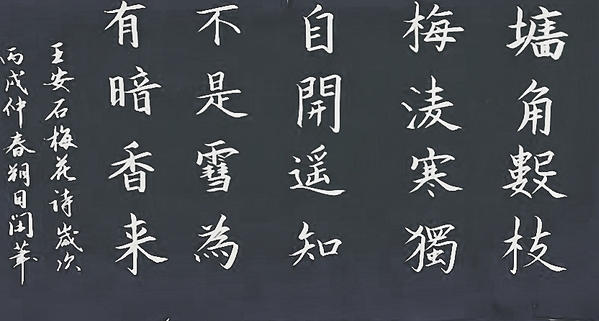 墻角數枝
梅淩寒獨
自開遥知
不是雪為
有暗香来
王安石梅花詩歲次
丙戌仲春朔日